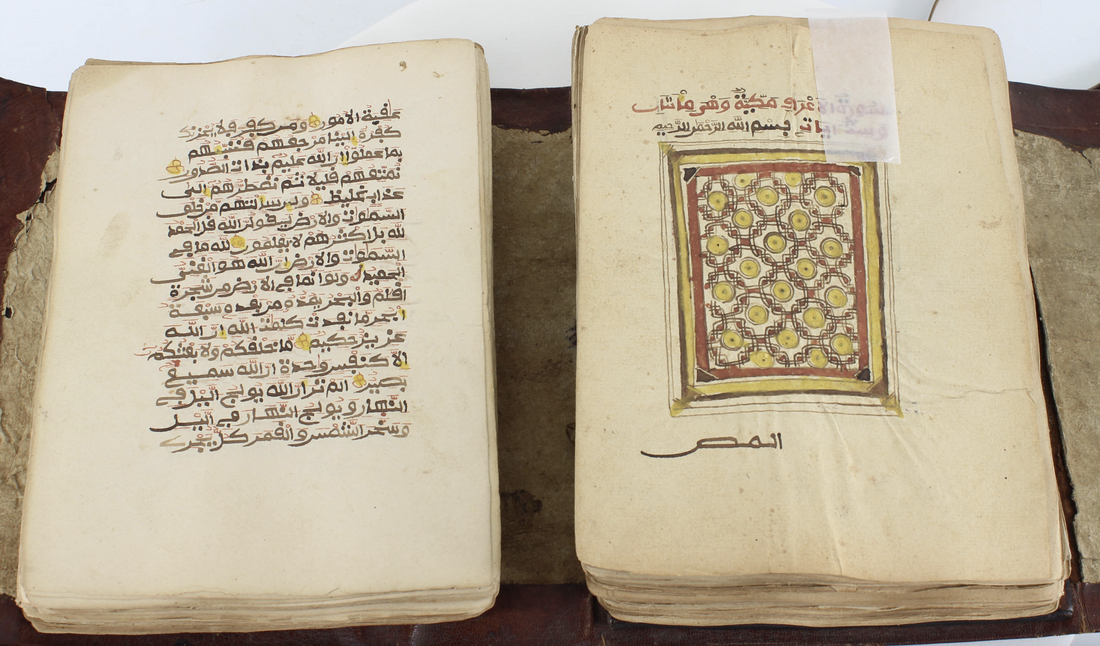 سورة الاعراف مكية وهي مايتان
وست ايات بسم الله الرحمن الرحيم
المص
عقبة الامور ومن كفر فلا يحزنك
كفره الينا مرجعهم فننبئهم
بما عملوا ان الله عليم بذات الصدور
نمتعهم قليلا ثم نضطرهم الى
عذاب غليظ ولين سالتهم من خلق
السموت والارض ليقولن الله قل الحمد
لله بل اكثرهم لا يعلمون لله ما في
السموت والارض ان الله هو الغني
الحميد ولو انما في الارض من شجرة
اقلم والبحر يمده من بعده سبعة
ابحر ما نفدت كلمت الله ان الله
عزيز حكيم ما خلقكم ولا بعثكم
الا كنفس وحدة ان الله سميع
بصير الم تر ان الله يولج اليل في
النهار ويولج النهار في اليل
وسخر الشمس والقمر كل يجري